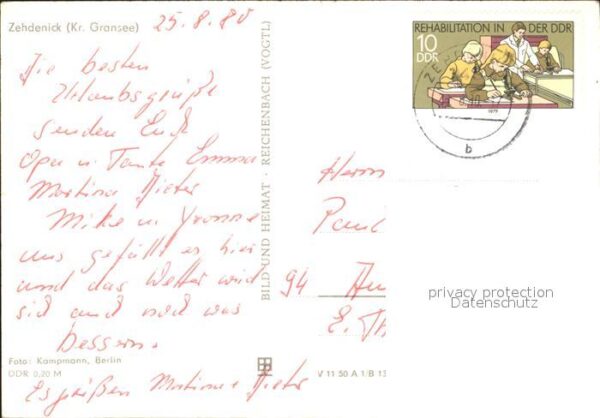 Zehdenick (Kr. Gransee)
25.8.80
Die besten
Urlaubsgrüße
senden Euch
Opa u. Tante Emma
Martina Dieter
Mike u. Yvonne
uns gefällt es hier
und das Wetter wird
sich auch noch was
bessern.
Foto: Kampmann, Berlin
DDR 0,20 M
Es grüßen Martina + Dieter
BILD UND HEIMAT · REICHENBACH (VOGTL)
V 11 50 A 1/B 13
REHABILITATION IN DER DDR
10
DDR
1979
b
Herrn
Paul
94
E. Th
privacy protection
Datenschutz